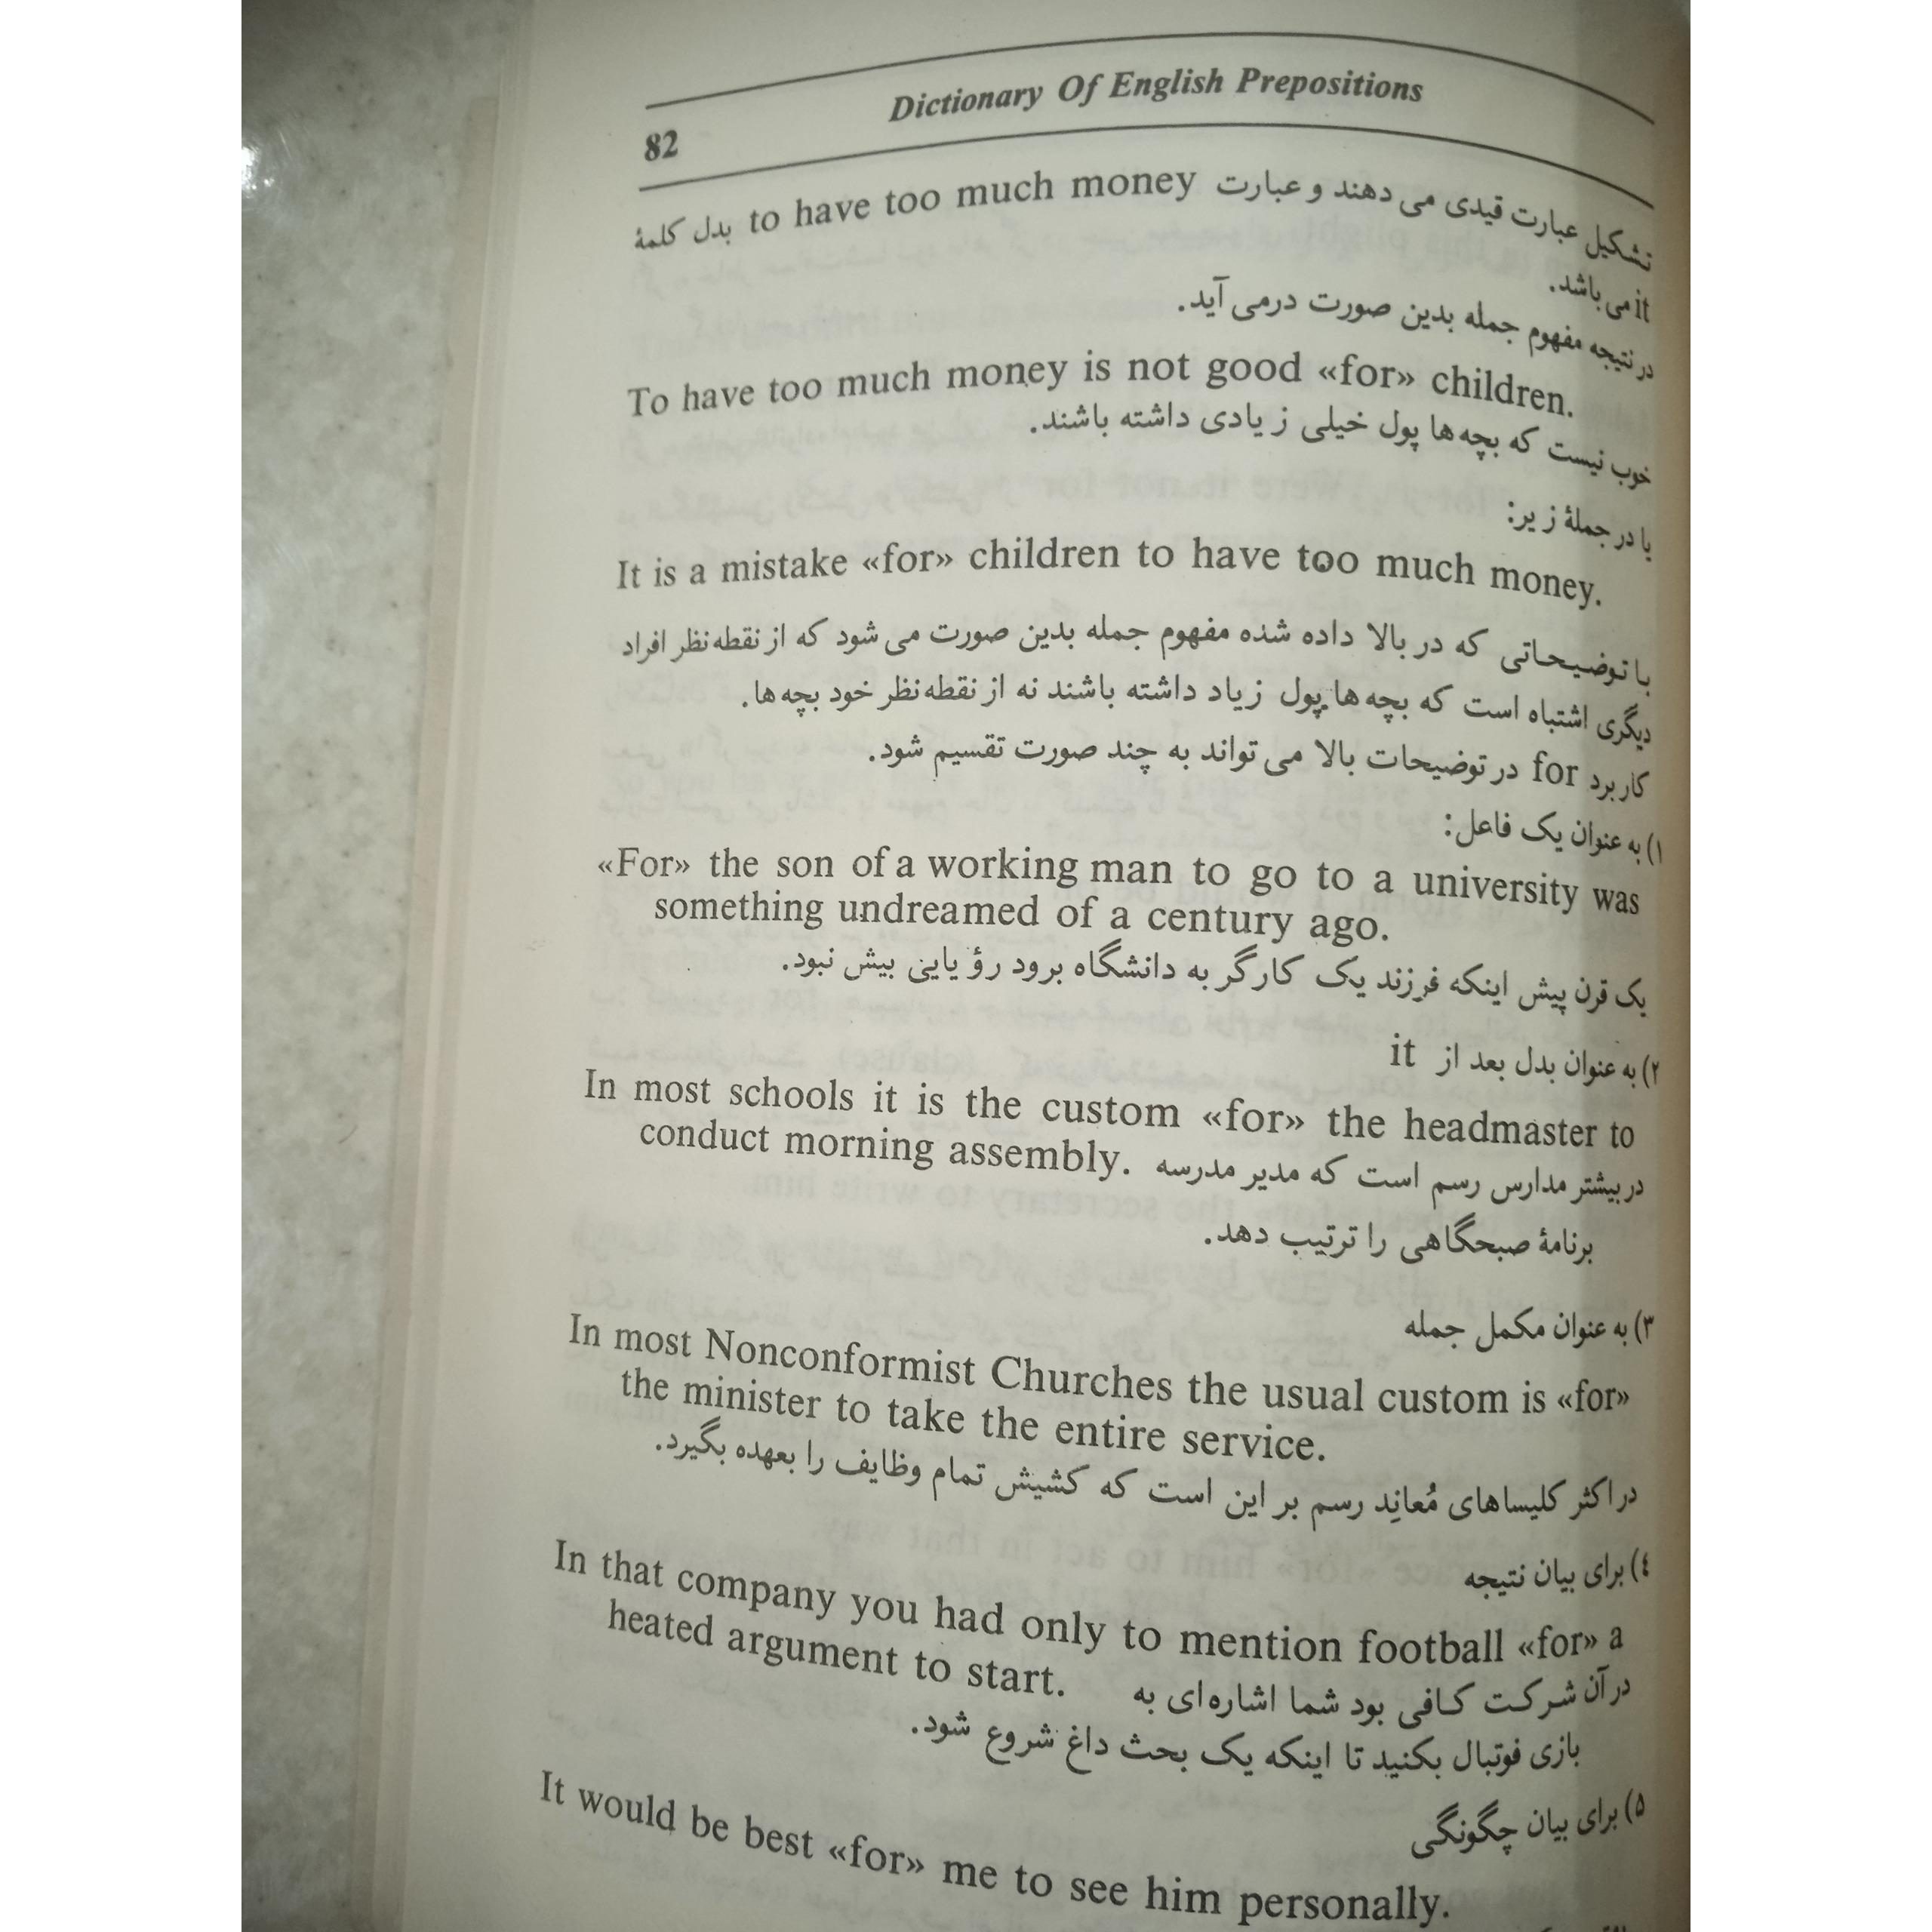 Dictionary Of English Prepositions
82
تشکیل عبارت قیدی می دهند و عبارت to have too much money بدل کلمهٔ
it می باشد.
در نتیجه مفهوم جمله بدین صورت درمی آید.
To have too much money is not good «for» children.
خوب نیست که بچه ها پول خیلی زیادی داشته باشند.
یا در جملهٔ زیر:
It is a mistake «for» children to have too much money.
با توضیحاتی که در بالا داده شده مفهوم جمله بدین صورت می شود که از نقطه نظر افراد
دیگری اشتباه است که بچه ها پول زیاد داشته باشند نه از نقطه نظر خود بچه ها.
کاربرد for در توضیحات بالا می تواند به چند صورت تقسیم شود.
۱) به عنوان یک فاعل:
«For» the son of a working man to go to a university was
something undreamed of a century ago.
یک قرن پیش اینکه فرزند یک کارگر به دانشگاه برود رؤیایی بیش نبود.
۲) به عنوان بدل بعد از it
In most schools it is the custom «for» the headmaster to
conduct morning assembly. در بیشتر مدارس رسم است که مدیر مدرسه
برنامهٔ صبحگاهی را ترتیب دهد.
۳) به عنوان مکمل جمله
In most Nonconformist Churches the usual custom is «for»
the minister to take the entire service.
در اکثر کلیساهای مُعانِد رسم بر این است که کشیش تمام وظایف را بعهده بگیرد.
٤) برای بیان نتیجه
In that company you had only to mention football «for» a
heated argument to start. در آن شرکت کافی بود شما اشاره ای به
بازی فوتبال بکنید تا اینکه یک بحث داغ شروع شود.
۵) برای بیان چگونگی
It would be best «for» me to see him personally.